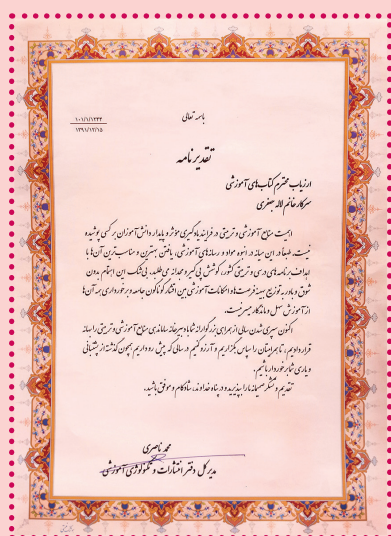 باسمه تعالی
۱۰۱/۱/۱۲۳۴
۱۳۹۱/۱۲/۱۵
تقدیرنامه
ارزیاب محترم کتاب‌های آموزشی
سرکار خانم لاله جعفری
اهمیت منابع آموزشی و تربیتی در فرایند یادگیری مؤثر و پایدار دانش‌آموزان بر کسی پوشیده
نیست. طبعاً در این میانه در انبوه مواد و رسانه‌های آموزشی، یافتن بهترین و مناسب‌ترین آن‌ها با
اهداف برنامه‌های درسی و تربیتی کشور، کوششی پی‌گیر و مجدانه می‌طلبد. بی‌شک این اهتمام بدون
شوق و باور به توزیع بهینه فرصت‌ها و امکانات آموزشی بین اقشار گوناگون جامعه و برخورداری همه آن‌ها
از آموزش سهل و ماندگار میسر نیست.
اکنون سپری شدن سالی از همراهی بزرگوارانه شما با دبیرخانه ساماندهی منابع آموزشی و تربیتی را بهانه
قرار دادیم، تا همراهیتان را سپاس بگزاریم و آرزو کنیم در سالی که پیش رو داریم همچون گذشته از پشتیبانی
و یاری شما برخوردار باشیم.
تقدیم و تشکر صمیمانه ما را بپذیرید و در پناه خداوند، شادکام و موفق باشید.
محمد ناصری
مدیرکل دفتر انتشارات و تکنولوژی آموزشی